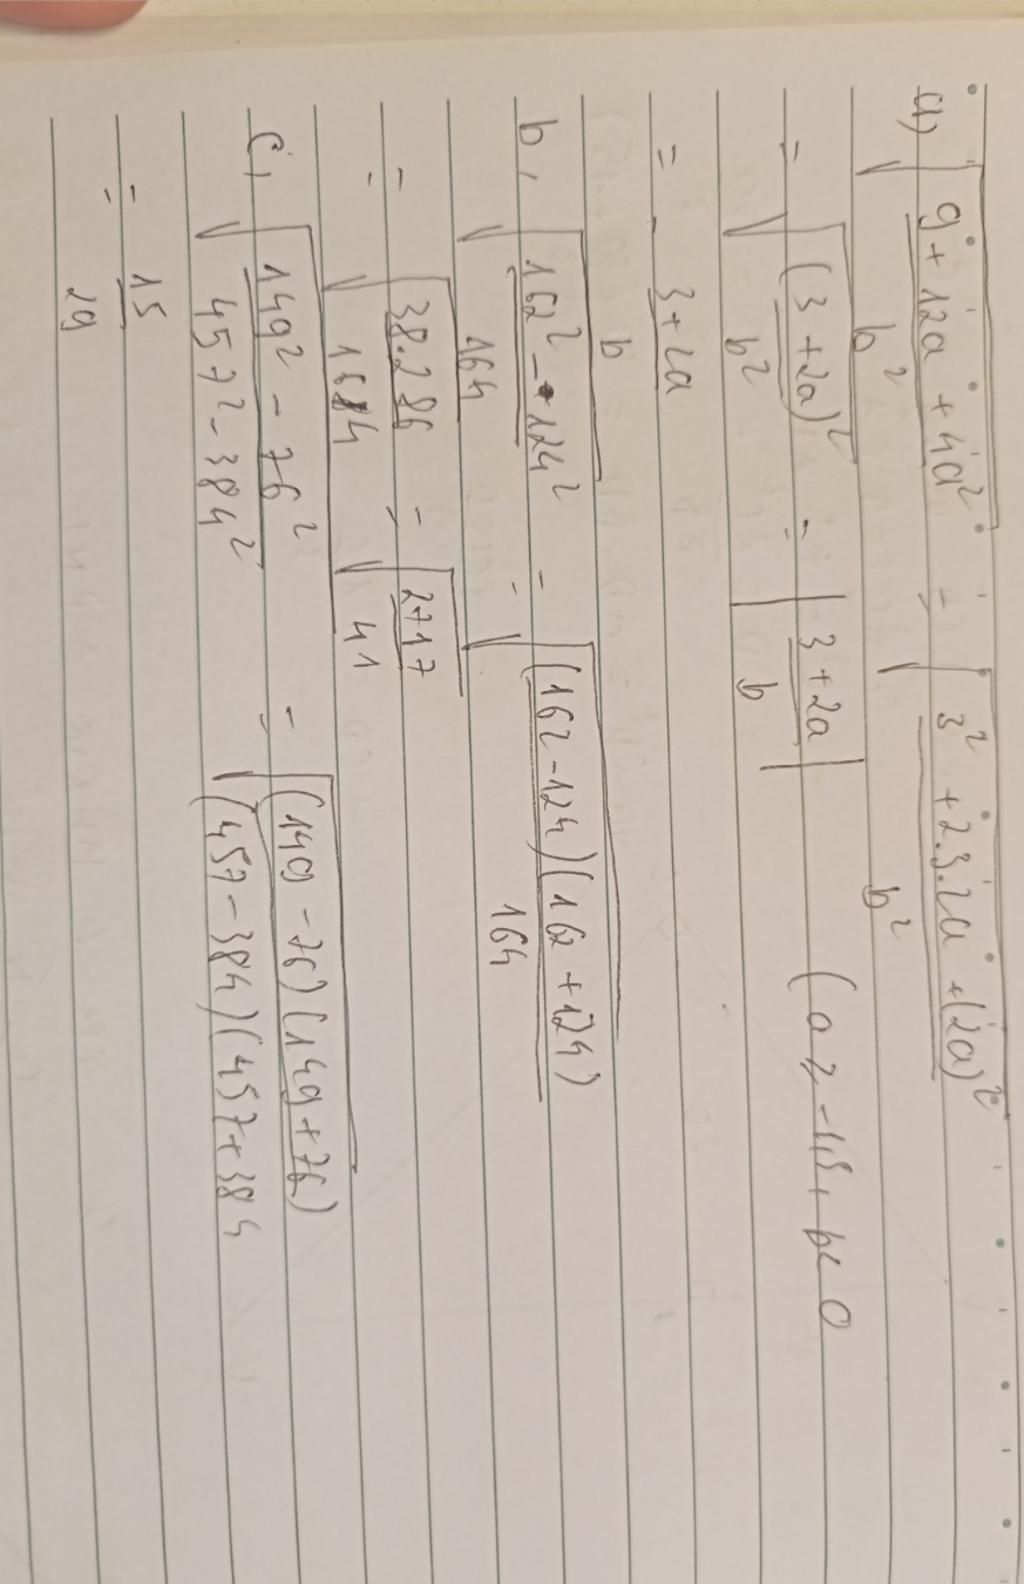 a) √(9 + 12a + 4a² / b²) = √(3² + 2.3.2a + (2a)² / b²)
= √((3 + 2a)² / b²) = |3 + 2a / b| (a ≥ -1,5, b < 0
= 3 + 2a / b
b, √(162² - 124² / 164) = √((162 - 124)(162 + 124) / 164)
= √(38.286 / 164) = √(2717 / 41)
c, √(149² - 76² / 457² - 384²) = √((149 - 76)(149 + 76) / (457 - 384)(457 + 384
= 15 / 29